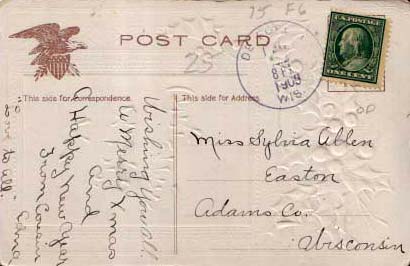 75 F6
POST CARD
25
U.S. POSTAGE
ONE CENT
8 PM
1909
WIS.
This side for Correspondence.
This side for Address.
Wishing You all
A Merry Xmas
And
A Happy New Year
From Cousin
Edna
to all.
Miss Sylvia Allen
Easton
Adams Co.
Wisconsin